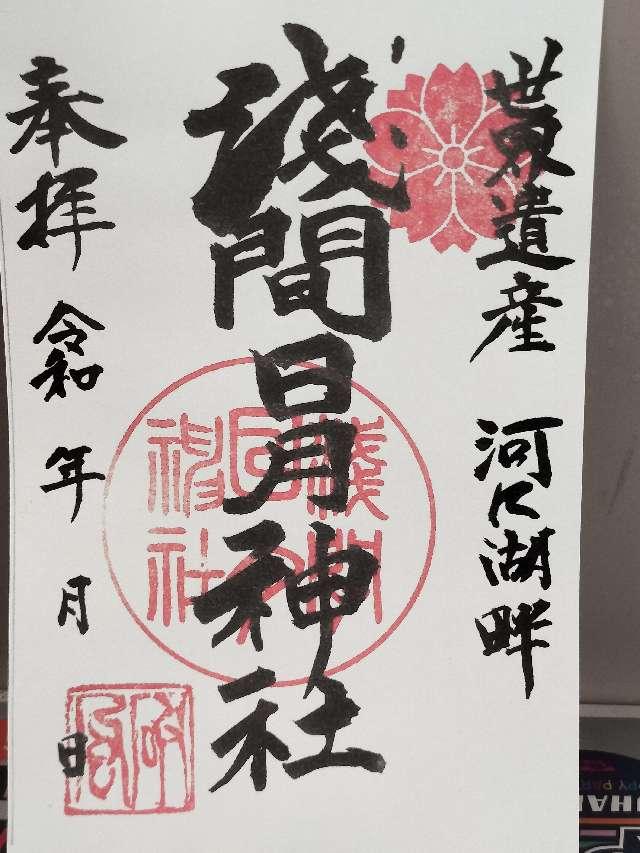 世界遺産 河口湖畔
淺間日月神社
奉拝 令和 年 月 日